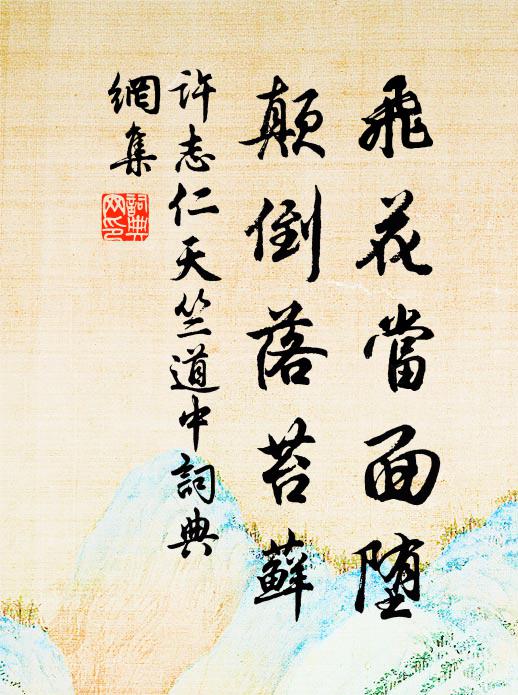 飛花當面堕
顛倒落苔蘚
許志仁天竺道中詞典
網集
詞典
网印